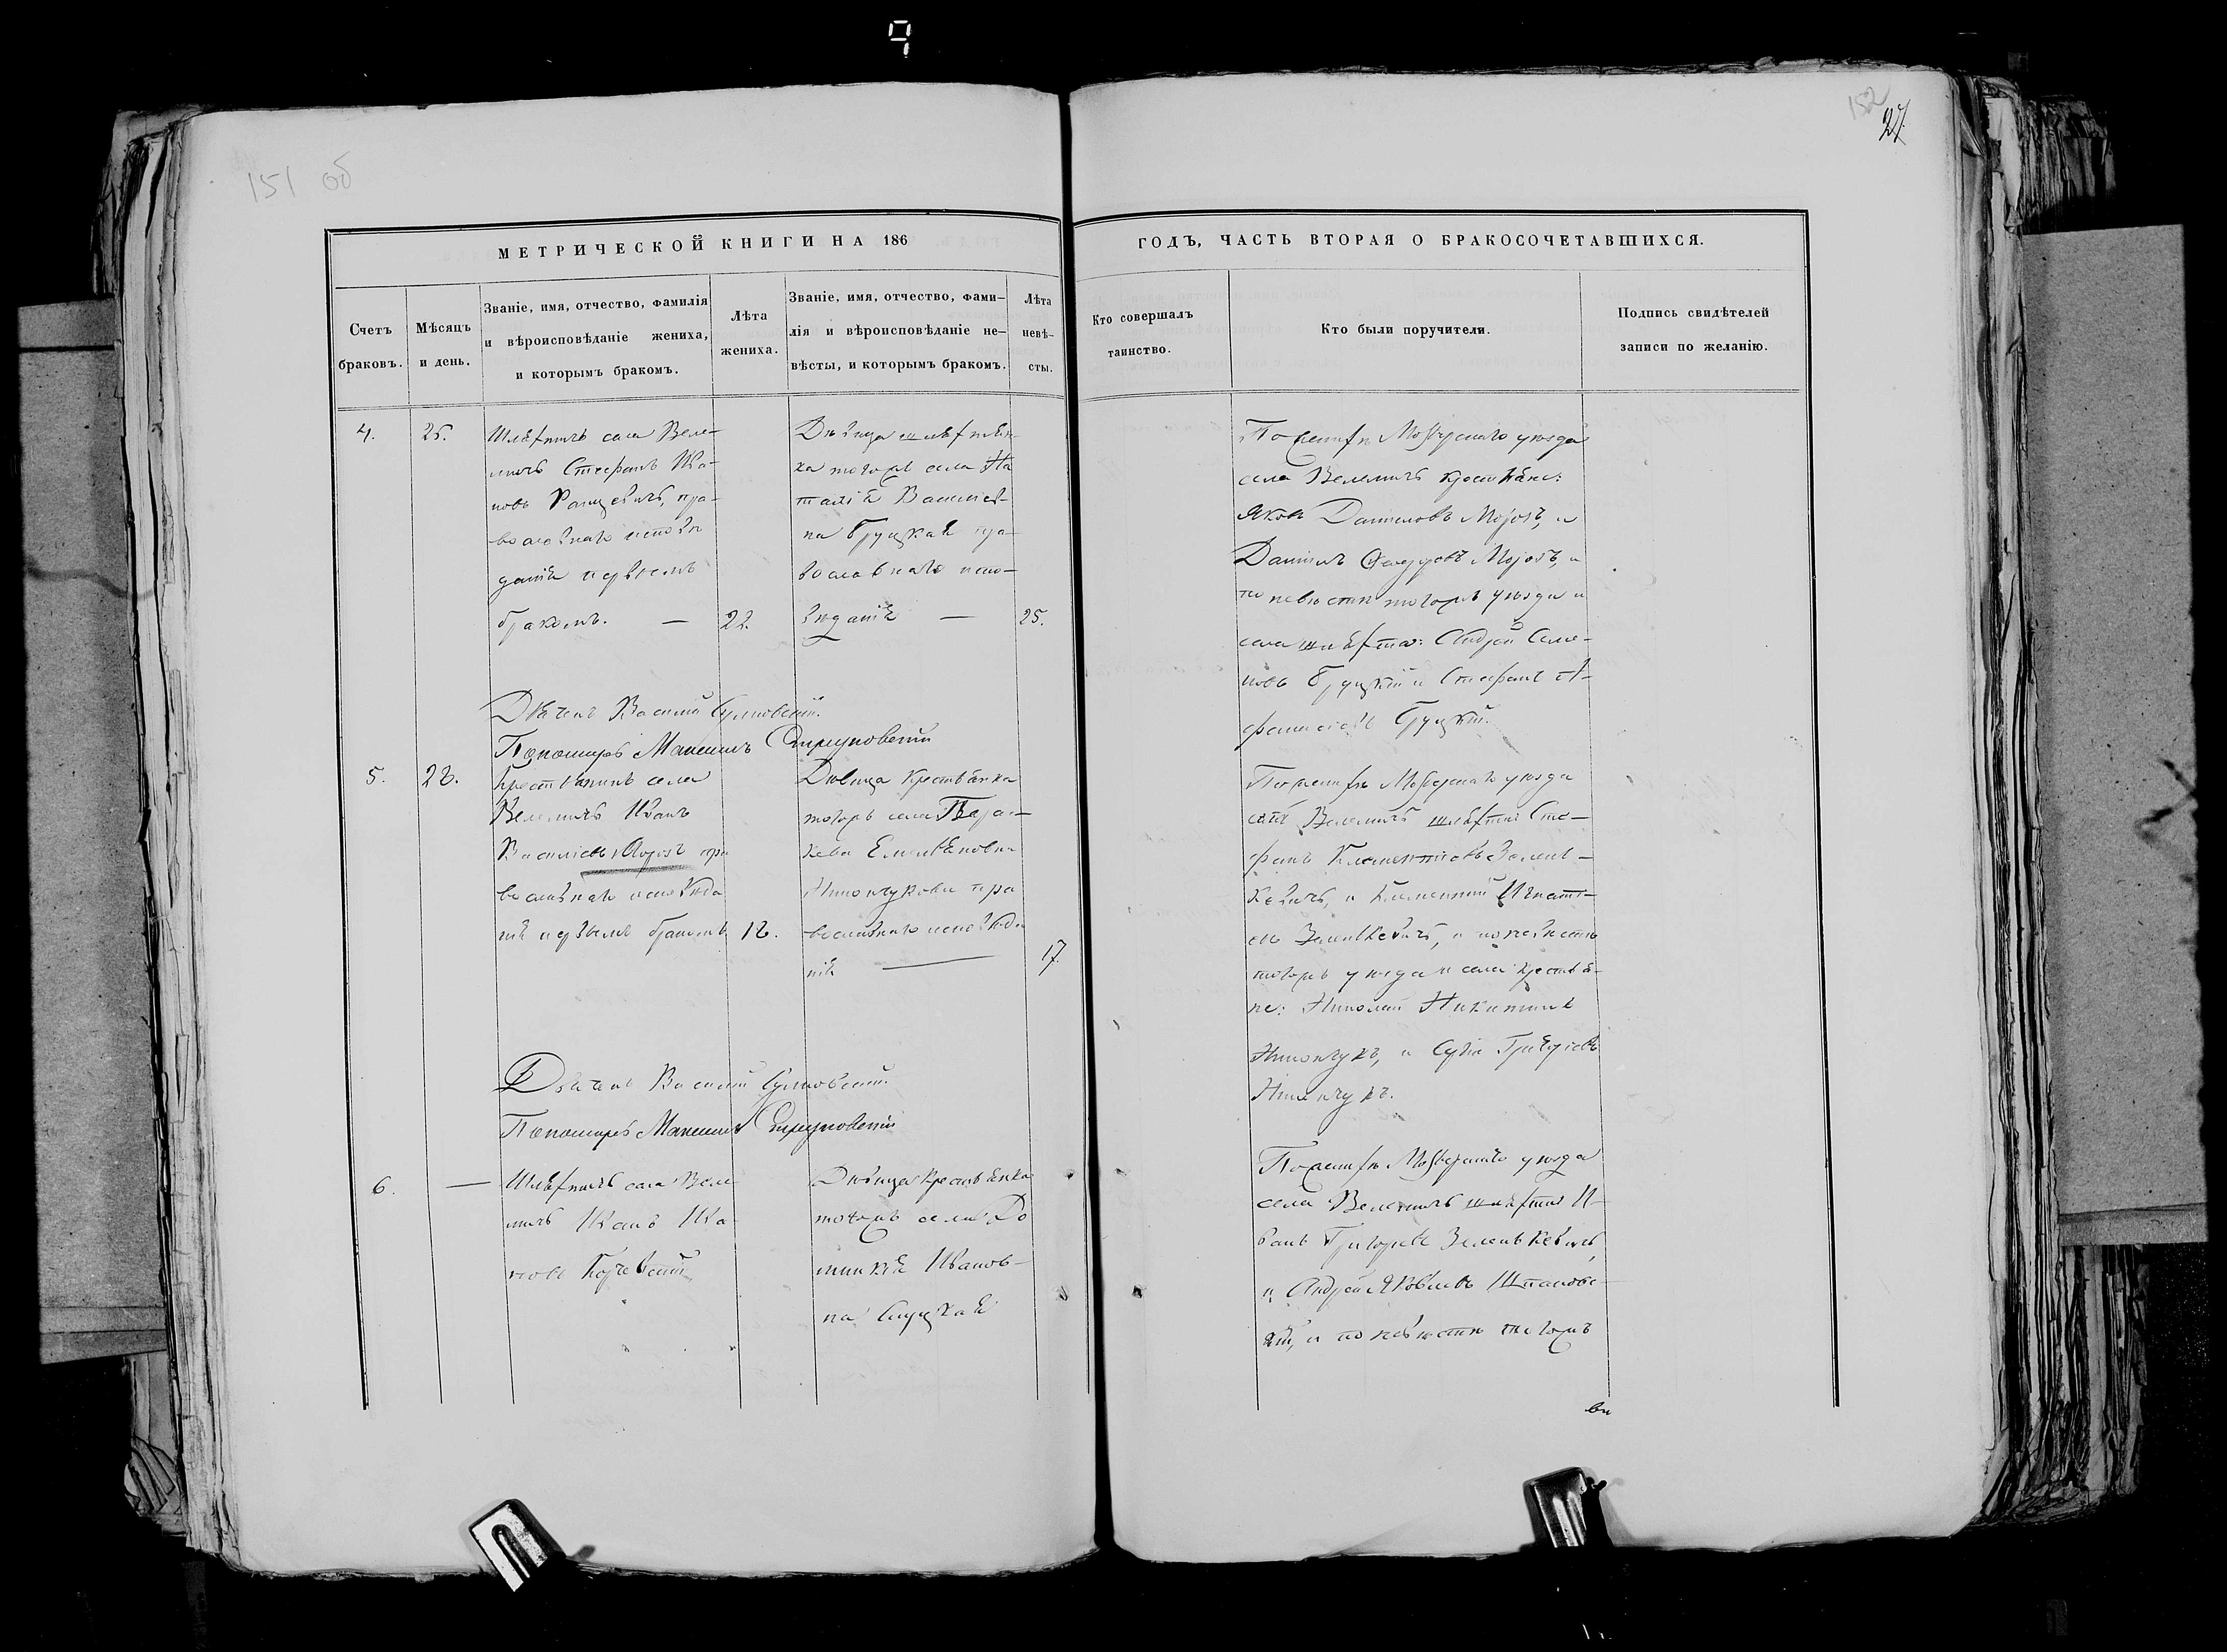 151 об
152
27.
МЕТРИЧЕСКОЙ КНИГИ НА 186
ГОДЪ, ЧАСТЬ ВТОРАЯ О БРАКОСОЧЕТАВШИХСЯ.
Счетъ браковъ.
Мѣсяцъ и день.
Званіе, имя, отчество, фамилія
и вѣроисповѣданіе жениха,
и которымъ бракомъ.
Лѣта
жениха.
Званіе, имя, отчество, фами-
лія и вѣроисповѣданіе не-
вѣсты, и которымъ бракомъ.
Лѣта
невѣ-
сты.
Кто совершалъ
таинство.
Кто были поручители.
Подпись свидѣтелей
записи по желанію.
4.
25.
Шляхтичъ села Веле-
мичъ Стефанъ Ива-
новъ пра-
вославнаго исповѣ
данія первымъ
бракомъ. — 22.
Дѣвица шляхтян
ка тогожъ села На
талія Василіев-
на Груцкая пра-
вославнаго испо-
вѣданія — 25.
По женихѣ Мозырскаго уѣзда
села Велемичъ крестьяне:
Яковъ Даниловъ Морозъ, и
Даніилъ Морозъ, и
по невѣстѣ тогожъ уѣзда и
села шляхта: Андрей Семе-
новъ Груцкій и Стефанъ А-
фанасіевъ Груцкій.
Дьячекъ Василій
Пономарь Максимъ
5.
28.
Крестьянинъ села
Велемичъ Иванъ
Василіевъ Морозъ пра
вославнаго исповѣда
нія первымъ бракомъ 18.
Дѣвица крестьянка
тогожъ села Парас-
кева Емельяновна
пра
вославнаго исповѣда
нія — 17.
По женихѣ Мозырскаго уѣзда
села Велемичъ шляхта: Сте-
фанъ Климентіевъ Зелень-
кевичъ, и Климентій Игнаті-
евъ Зенькевичъ, и по невѣстѣ
тогожъ уѣзда и села крестья-
не: Николай Никитинъ
и Григоріевъ
Дьячекъ Василій
Пономарь Максимъ
6.
—
Шляхтичъ села Веле
мичъ Иванъ Ива
новъ
Дѣвица крестьянка
тогожъ села До
миникія Иванов-
на
По женихѣ Мозырскаго уѣзда
села Велемичъ шляхта: И-
ванъ Григорьевъ Зеленькевичъ,
и Андрей Яковлевъ Шпаковс
кій, и по невѣстѣ тогожъ